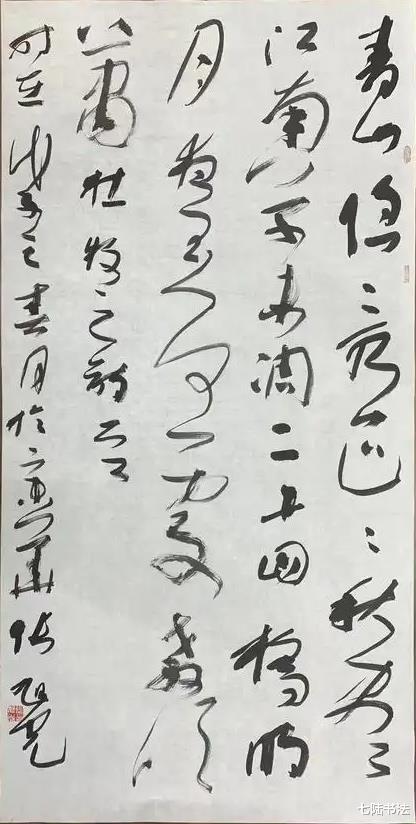 青山隐々水迢々秋尽
江南草未凋二十四桥明
月夜玉人何处教吹
箫杜牧之诗
时在戊子之春月於
七陆书法